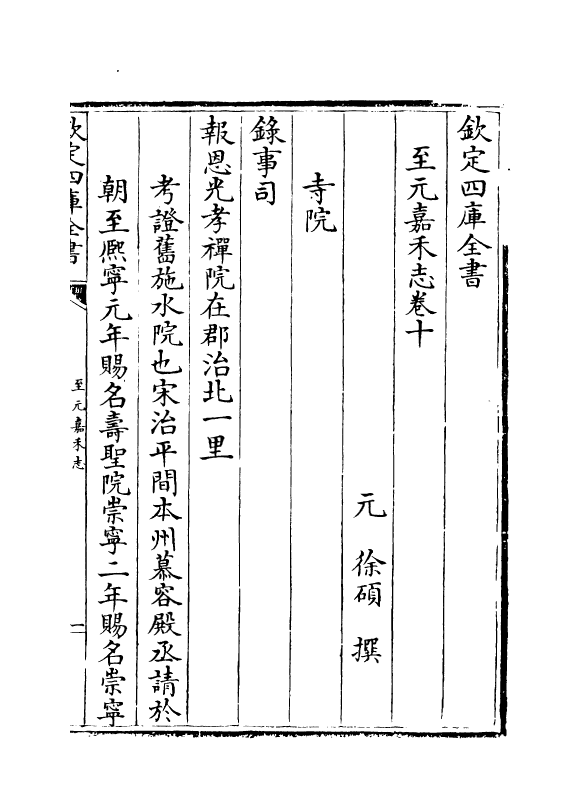 欽定四庫全書
至元嘉禾志卷十
元　徐碩　撰
寺院
錄事司
報恩光孝禪院在郡治北一里
考證舊施水院也宋治平間本州慕容殿丞請於
朝至熈寧元年賜名壽聖院崇寧二年賜名崇寧
欽定四庫全書
至元嘉禾志
一